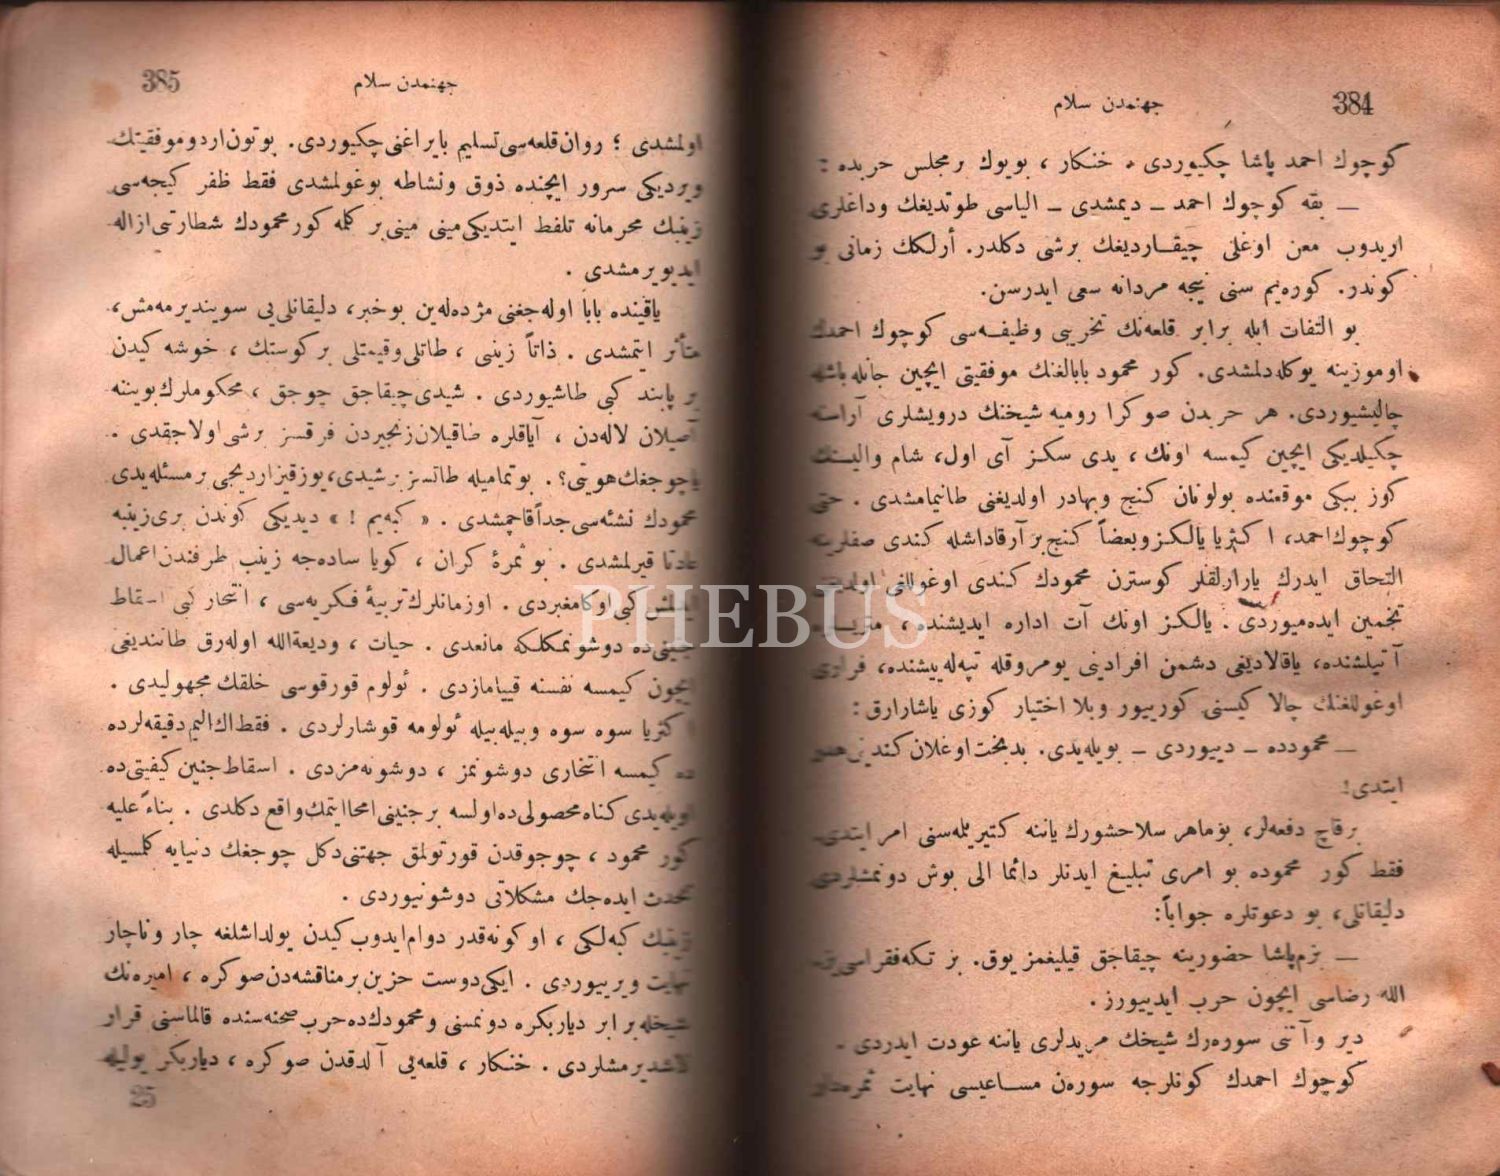 384
جهنمدن سلام
كوچوك احمد پاشا چكيوردى . خنكار ، بويوك بر مجلس حربده :
— بقه كوچوك احمد — ديمشدى — الياسى طوتديغك وداغلرى
اريدوب معن اوغلى چيقارديغك برشى دكلدر. أرلكك زمانى بو
كوندر. كوره‌يم سنى نيجه مردانه سعى ايدرسن.
بو التفات ايله برابر قلعه‌نك تخريبى وظيفه‌سى كوچوك احمدك
اوموزينه يوكله‌دلمشدى. كور محمود بابالغنك موفقيتى ايچين جانله باشله
چاليشيوردى. هر حربدن صوكرا روميه شيخنك درويشلرى آراسنه
چكيلديكى ايچين كيمسه اونك ، يدى سكز آى اول، شام واليسنك
كوز ببكى موقعنده بولونان كنج وبهادر اولديغنى طانيمامشدى . حتى
كوچوك احمد، اكثريا يالكز وبعضاً كنج بر آرقاداشله كندى صفلرينه
التحاق ايدرك يارارلقلر كوسترن محمودك كندى اوغوللغى اولديغنى
تخمين ايده‌ميوردى . يالكز اونك آت اداره ايديشنده ، مزراق
آتيلشنده، ياقالاديغى دشمن افرادينى يومروقله تپه‌له‌ييشنده، فرارى
اوغوللغنك چالا كيسنى كوريیور وبلا اختيار كوزى ياشارارق :
— محمودده — ديیوردى — بويله‌يدى. بدبخت اوغلان كندينى هدر
ايتدى!
برقاچ دفعه‌لر، بو ماهر سلاحشورك ياننه كتيريلمه‌سنى امر ايتدى.
فقط كور محموده بو امرى تبليغ ايدنلر دائما الى بوش دونمشلردى
دليقانلى، بو دعوتلره جواباً:
— بزم پاشا حضورينه چيقاجق قيليغمز يوق. بز تكه فقراسى‌يز.
الله رضاسى ايچون حرب ايديیورز .
دير وآتنى سوره‌رك شيخك مريدلرى ياننه عودت ايدردى .
كوچوك احمدك كونلرجه سوره‌ن مساعيسى نهايت ثمره‌دار
385
جهنمدن سلام
اولمشدى ؛ روان قلعه‌سى تسليم بايراغنى چكيوردى. بوتون اردو موفقيتك
ويرديكى سرور ايچنده ذوق ونشاطه بوغولمشدى فقط ظفر كيجه‌سى
زينبك محرمانه تلفظ ايتديكى مينى مينى بر كلمه كور محمودك شطارتى ازاله
ايديويرمشدى .
ياقينده بابا اوله‌جغنى مژده‌له‌ين بو خبر، دليقانلى‌يى سوينديرمه‌مش،
متأثر ايتمشدى . ذاتاً زينبى ، طاتلى وقيمتلى بر كوستك ، خوشه كيدن
بر پابند كبى طاشيوردى . شيدى چيقاجق چوجق ، محكوملرك بويننه
آصيلان لاله‌دن ، آياقلره طاقيلان زنجيردن فرقسز برشى اولاجقدى .
يا چوجغك هويتى؟ . بو تماميله طاتسز برشيدى، يوز قيزارديجى بر مسئله‌يدى
محمودك نشئه‌سى جداً قاچمشدى . « كبه‌يم ! » ديديكى كوندن برى زينبه
عادتا قيرلمشدى . بو ثمرۀ كران ، كويا ساده‌جه زينب طرفندن اعمال
ايدلمش كبى اوكا مغبردى . اوزمانلرك تربيۀ فكريه‌سى ، انتحار كبى اسقاط
جنينى‌ده دوشونمكلكه مانعدى . حيات ، وديعة‌الله اوله‌رق طانندیغى
ايچون كيمسه نفسنه قييامازدى . ئولوم قورقوسى خلقك مجهوليدى .
اكثريا سوه سوه وبيله‌بيله ئولومه قوشارلردى . فقط اك اليم دقيقه‌لرده
ده كيمسه انتحارى دوشونمز ، دوشونه‌مزدى . اسقاط جنين كيفيتى‌ده
اويله‌يدى كناه محصولى‌ده اولسه بر جنينى امحا ايتمك واقع دكلدى . بناءً عليه
كور محمود ، چوجوقدن قورتولمق جهتنى دكل چوجغك دنيايه كلمسيله
تحدث ايده‌جك مشكلاتى دوشونيوردى .
زينبك كبه‌لكى ، او كونه قدر دوام ايدوب كيدن يولداشلغه چار وناچار
نهايت ويريیوردى . ايكى دوست حزين بر مناقشه‌دن صوكره ، اميره‌نك
شيخله برابر دياربكره دونمسنى ومحمودك‌ده حرب صحنه‌سنده قالماسنى قرار
لاشديرمشلردى . خنكار ، قلعه‌يى آلدقدن صوكره ، دياربكر يوليله
25
PHEBUS